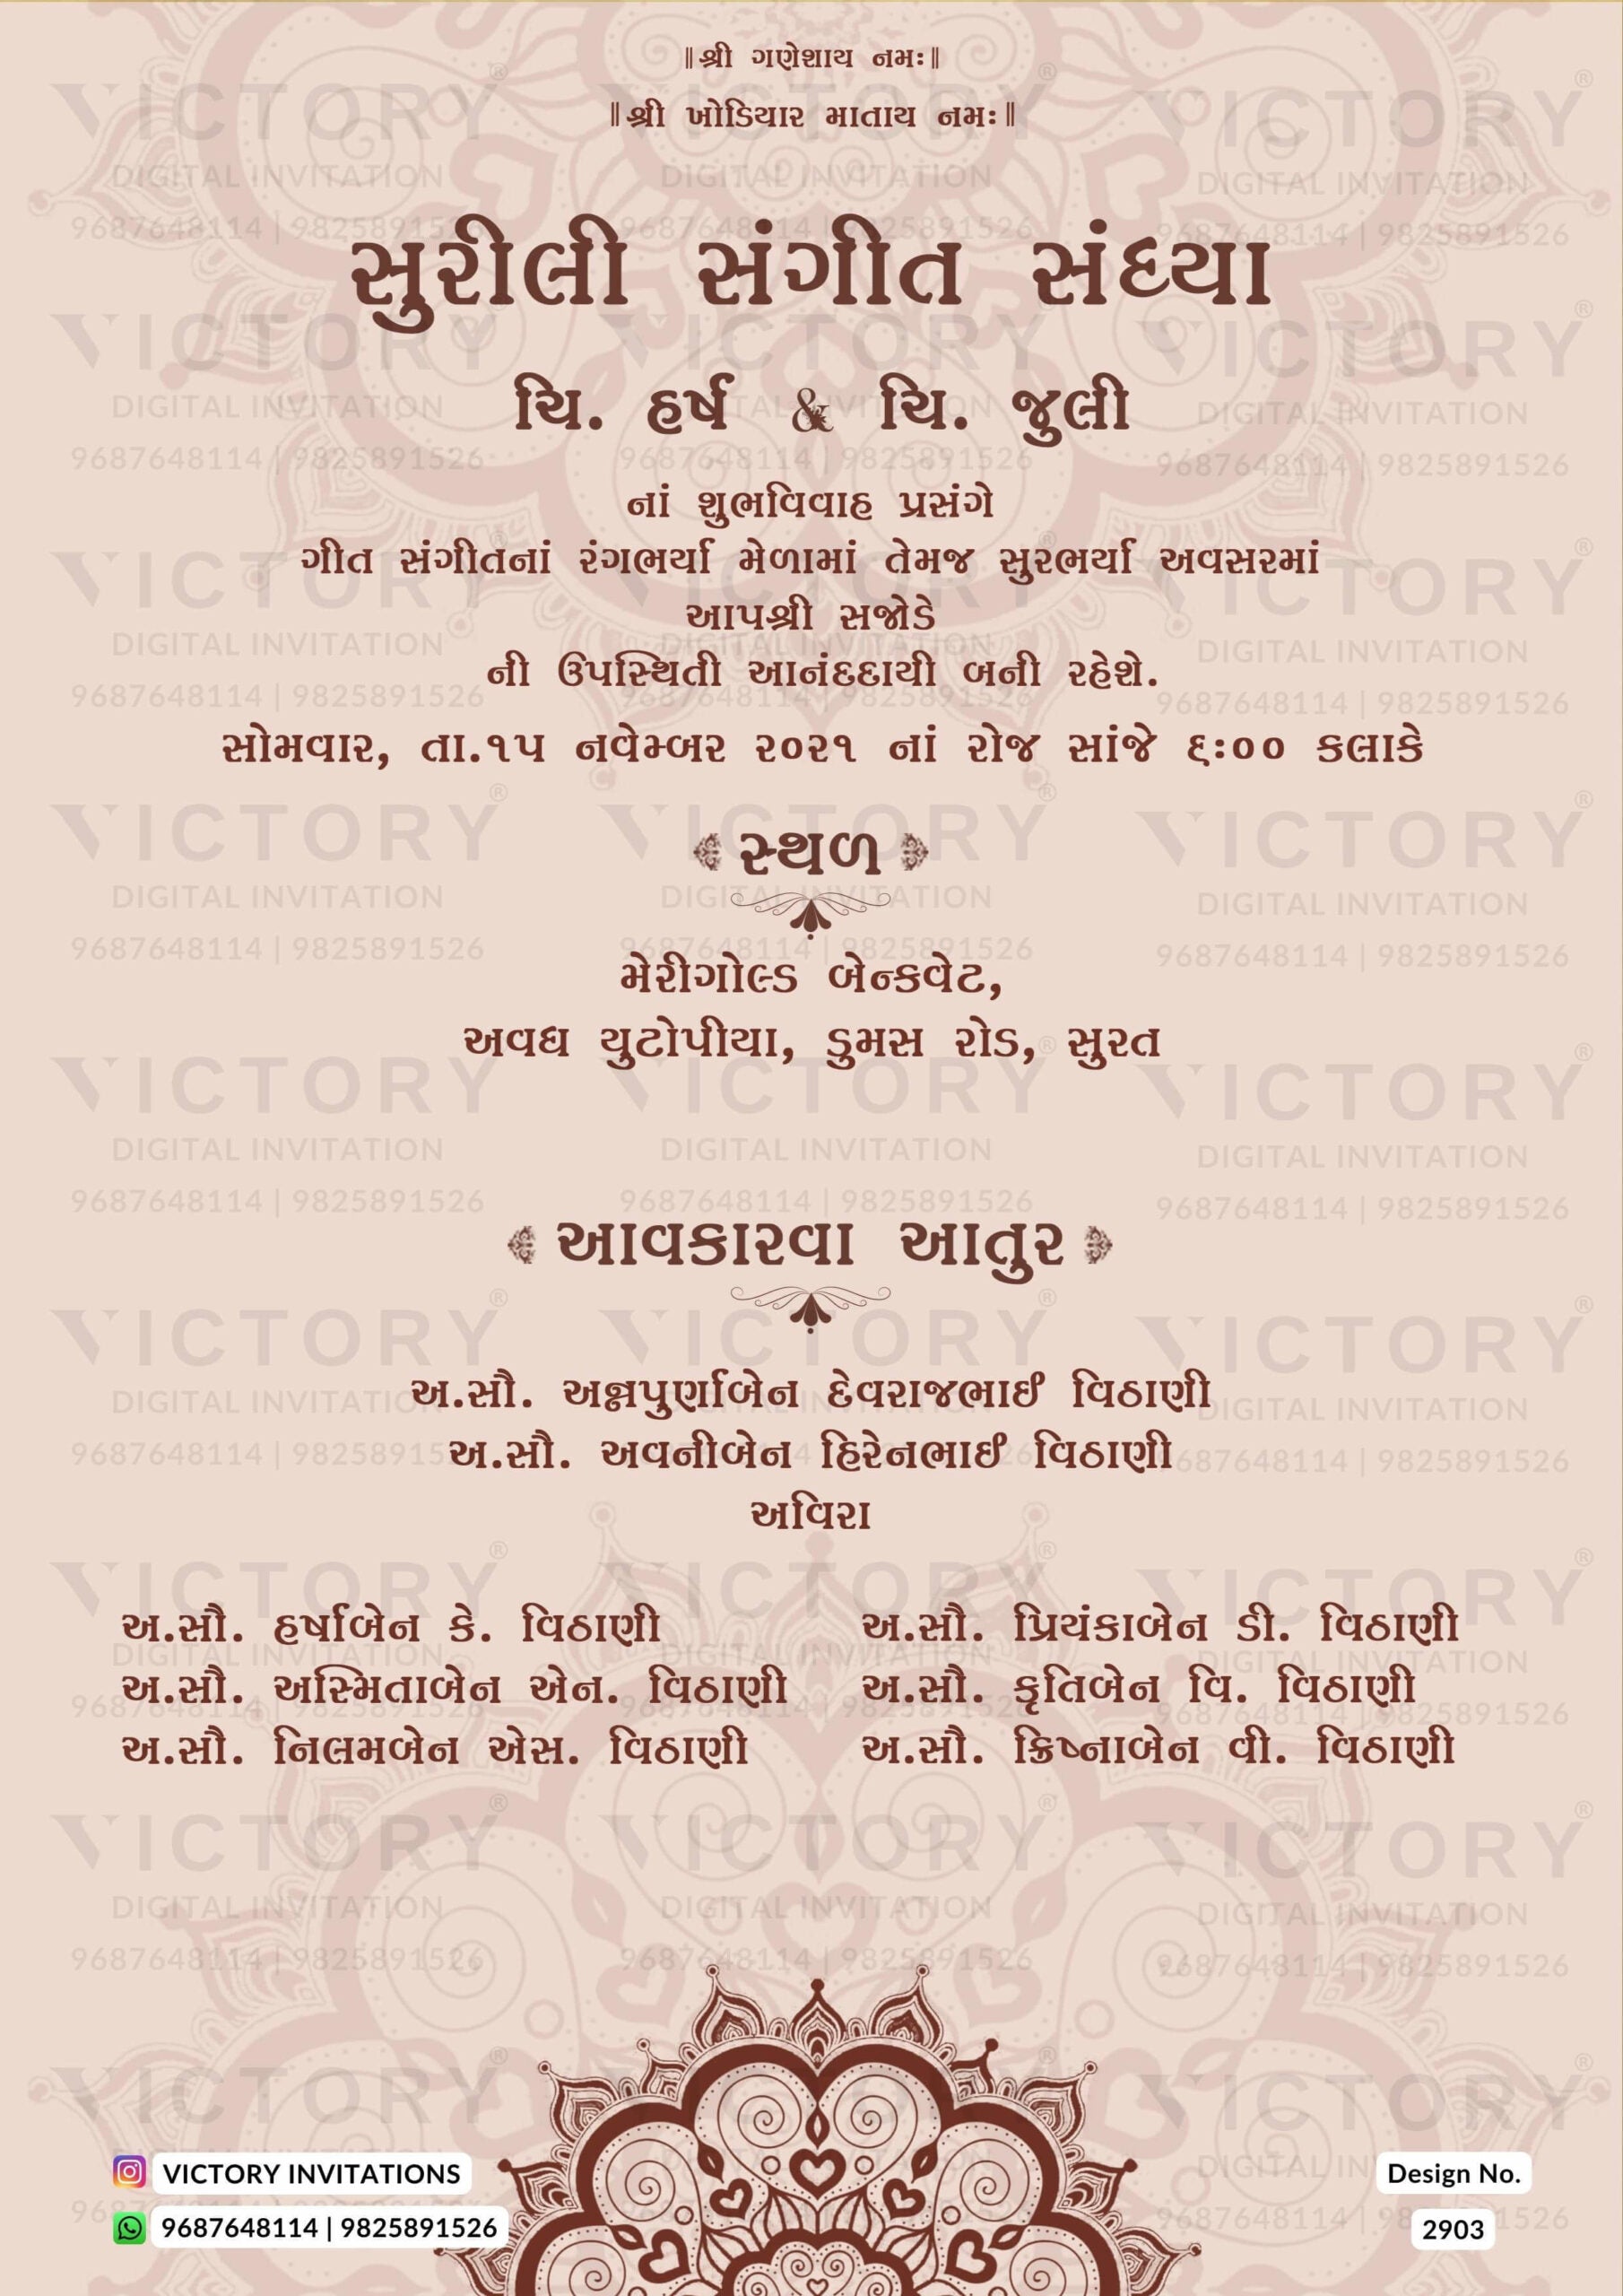 ॥ શ્રી ગણેશાય નમઃ ॥
॥ શ્રી ખોડિયાર માતાય નમઃ ॥
સુરીલી સંગીત સંધ્યા
ચિ. હર્ષ & ચિ. જુલી
નાં શુભવિવાહ પ્રસંગે
ગીત સંગીતનાં રંગભર્યા મેળામાં તેમજ સુરભર્યા અવસરમાં
આપશ્રી સજોડે
ની ઉપસ્થિતી આનંદદાયી બની રહેશે.
સોમવાર, તા.૧૫ નવેમ્બર ૨૦૨૧ નાં રોજ સાંજે ૬:૦૦ કલાકે
સ્થળ
મેરીગોલ્ડ બેન્કવેટ,
અવધ યુટોપીયા, ડુમસ રોડ, સુરત
આવકારવા આતુર
અ.સૌ. અન્નપુર્ણાબેન દેવરાજભાઈ વિઠાણી
અ.સૌ. અવનીબેન હિરેનભાઈ વિઠાણી
અવિરા
અ.સૌ. હર્ષાબેન કે. વિઠાણી
અ.સૌ. અસ્મિતાબેન એન. વિઠાણી
અ.સૌ. નિલમબેન એસ. વિઠાણી
અ.સૌ. પ્રિયંકાબેન ડી. વિઠાણી
અ.સૌ. કૃતિબેન વિ. વિઠાણી
અ.સૌ. ક્રિષ્નાબેન વી. વિઠાણી
VICTORY INVITATIONS
9687648114 | 9825891526
Design No.
2903
VICTORY®
DIGITAL INVITATION
9687648114 | 9825891526